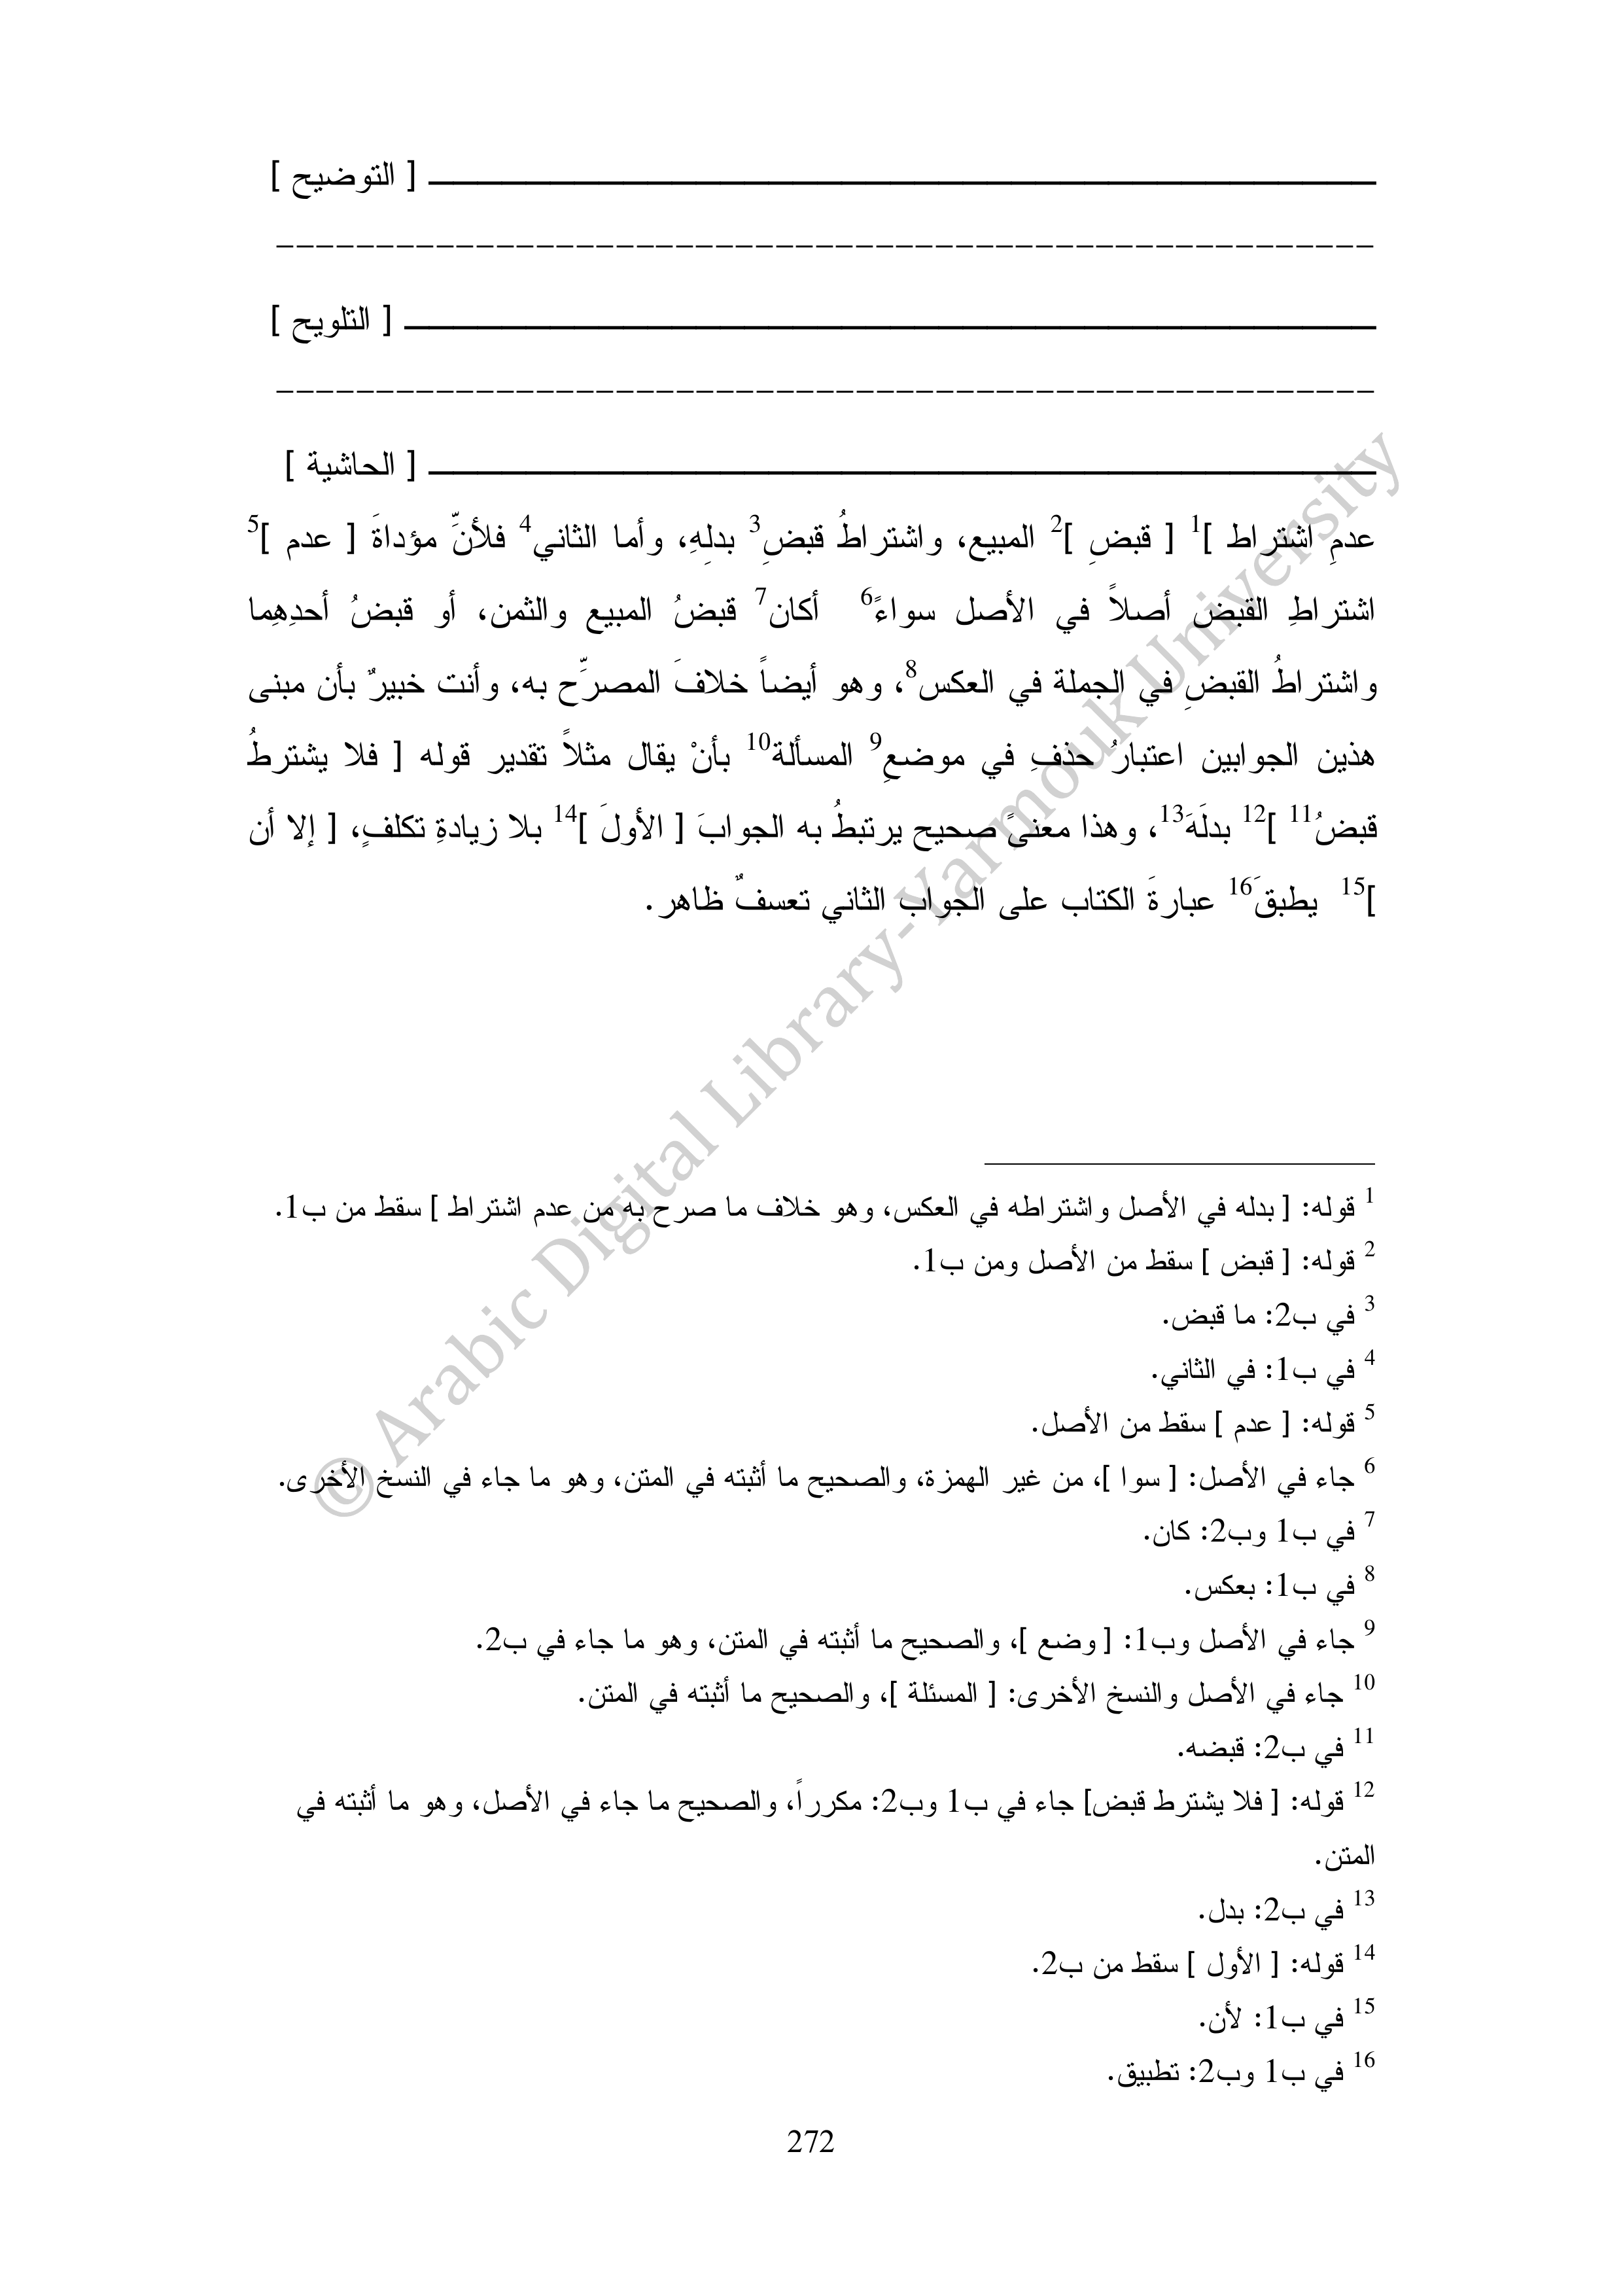 [ التوضيح ]
[ التلويح ]
[ الحاشية ]
عدمِ اشتراط ]1 [ قبضِ ]2 المبيع، واشتراطُ قبضِ3 بدلِهِ، وأما الثاني4 فلأنَّ مؤداةَ [ عدم ]5
اشتراطِ القبض أصلاً في الأصل سواءً6 أكان7 قبضُ المبيع والثمن، أو قبضُ أحدِهِما
واشتراطُ القبضِ في الجملة في العكس8، وهو أيضاً خلافَ المصرَّح به، وأنت خبيرٌ بأن مبنى
هذين الجوابين اعتبارُ حذفِ في موضعِ9 المسألة10 بأنْ يقال مثلاً تقدير قوله [ فلا يشترطُ
قبضُ11 ]12 بدلَهَ13، وهذا معنىً صحيح يرتبطُ به الجوابَ [ الأولَ ]14 بلا زيادةِ تكلفٍ، [ إلا أن
]15 يطبقَ16 عبارةَ الكتاب على الجواب الثاني تعسفٌ ظاهر.
1 قوله: [ بدله في الأصل واشتراطه في العكس، وهو خلاف ما صرح به من عدم اشتراط ] سقط من ب1.
2 قوله: [ قبض ] سقط من الأصل ومن ب1.
3 في ب2: ما قبض.
4 في ب1: في الثاني.
5 قوله: [ عدم ] سقط من الأصل.
6 جاء في الأصل: [ سوا ]، من غير الهمزة، والصحيح ما أثبته في المتن، وهو ما جاء في النسخ الأخرى.
7 في ب1 وب2: كان.
8 في ب1: بعكس.
9 جاء في الأصل وب1: [ وضع ]، والصحيح ما أثبته في المتن، وهو ما جاء في ب2.
10 جاء في الأصل والنسخ الأخرى: [ المسئلة ]، والصحيح ما أثبته في المتن.
11 في ب2: قبضه.
12 قوله: [ فلا يشترط قبض] جاء في ب1 وب2: مكرراً، والصحيح ما جاء في الأصل، وهو ما أثبته في
المتن.
13 في ب2: بدل.
14 قوله: [ الأول ] سقط من ب2.
15 في ب1: لأن.
16 في ب1 وب2: تطبيق.
272
© Arabic Digital Library-Yarmouk University